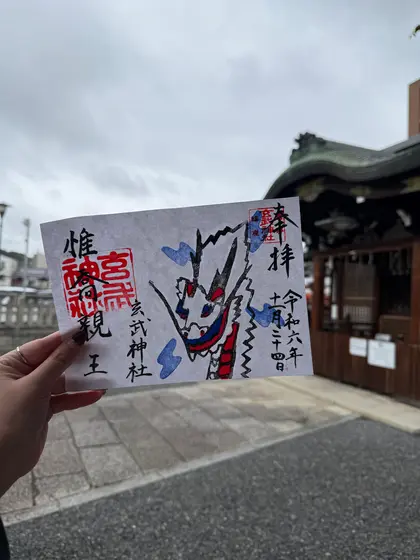 奉拝
令和六年
十月二十四日
玄武神社
玄武
神社
惟喬親王